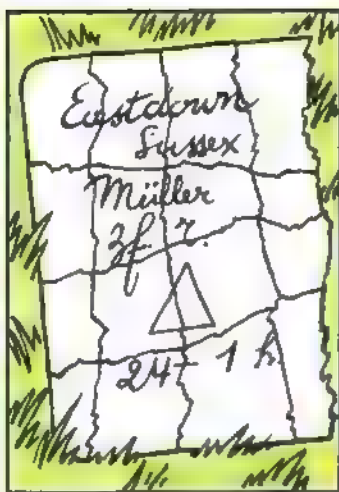 Eastdown
Sussex
Müller
3f r.
24 - 1 h